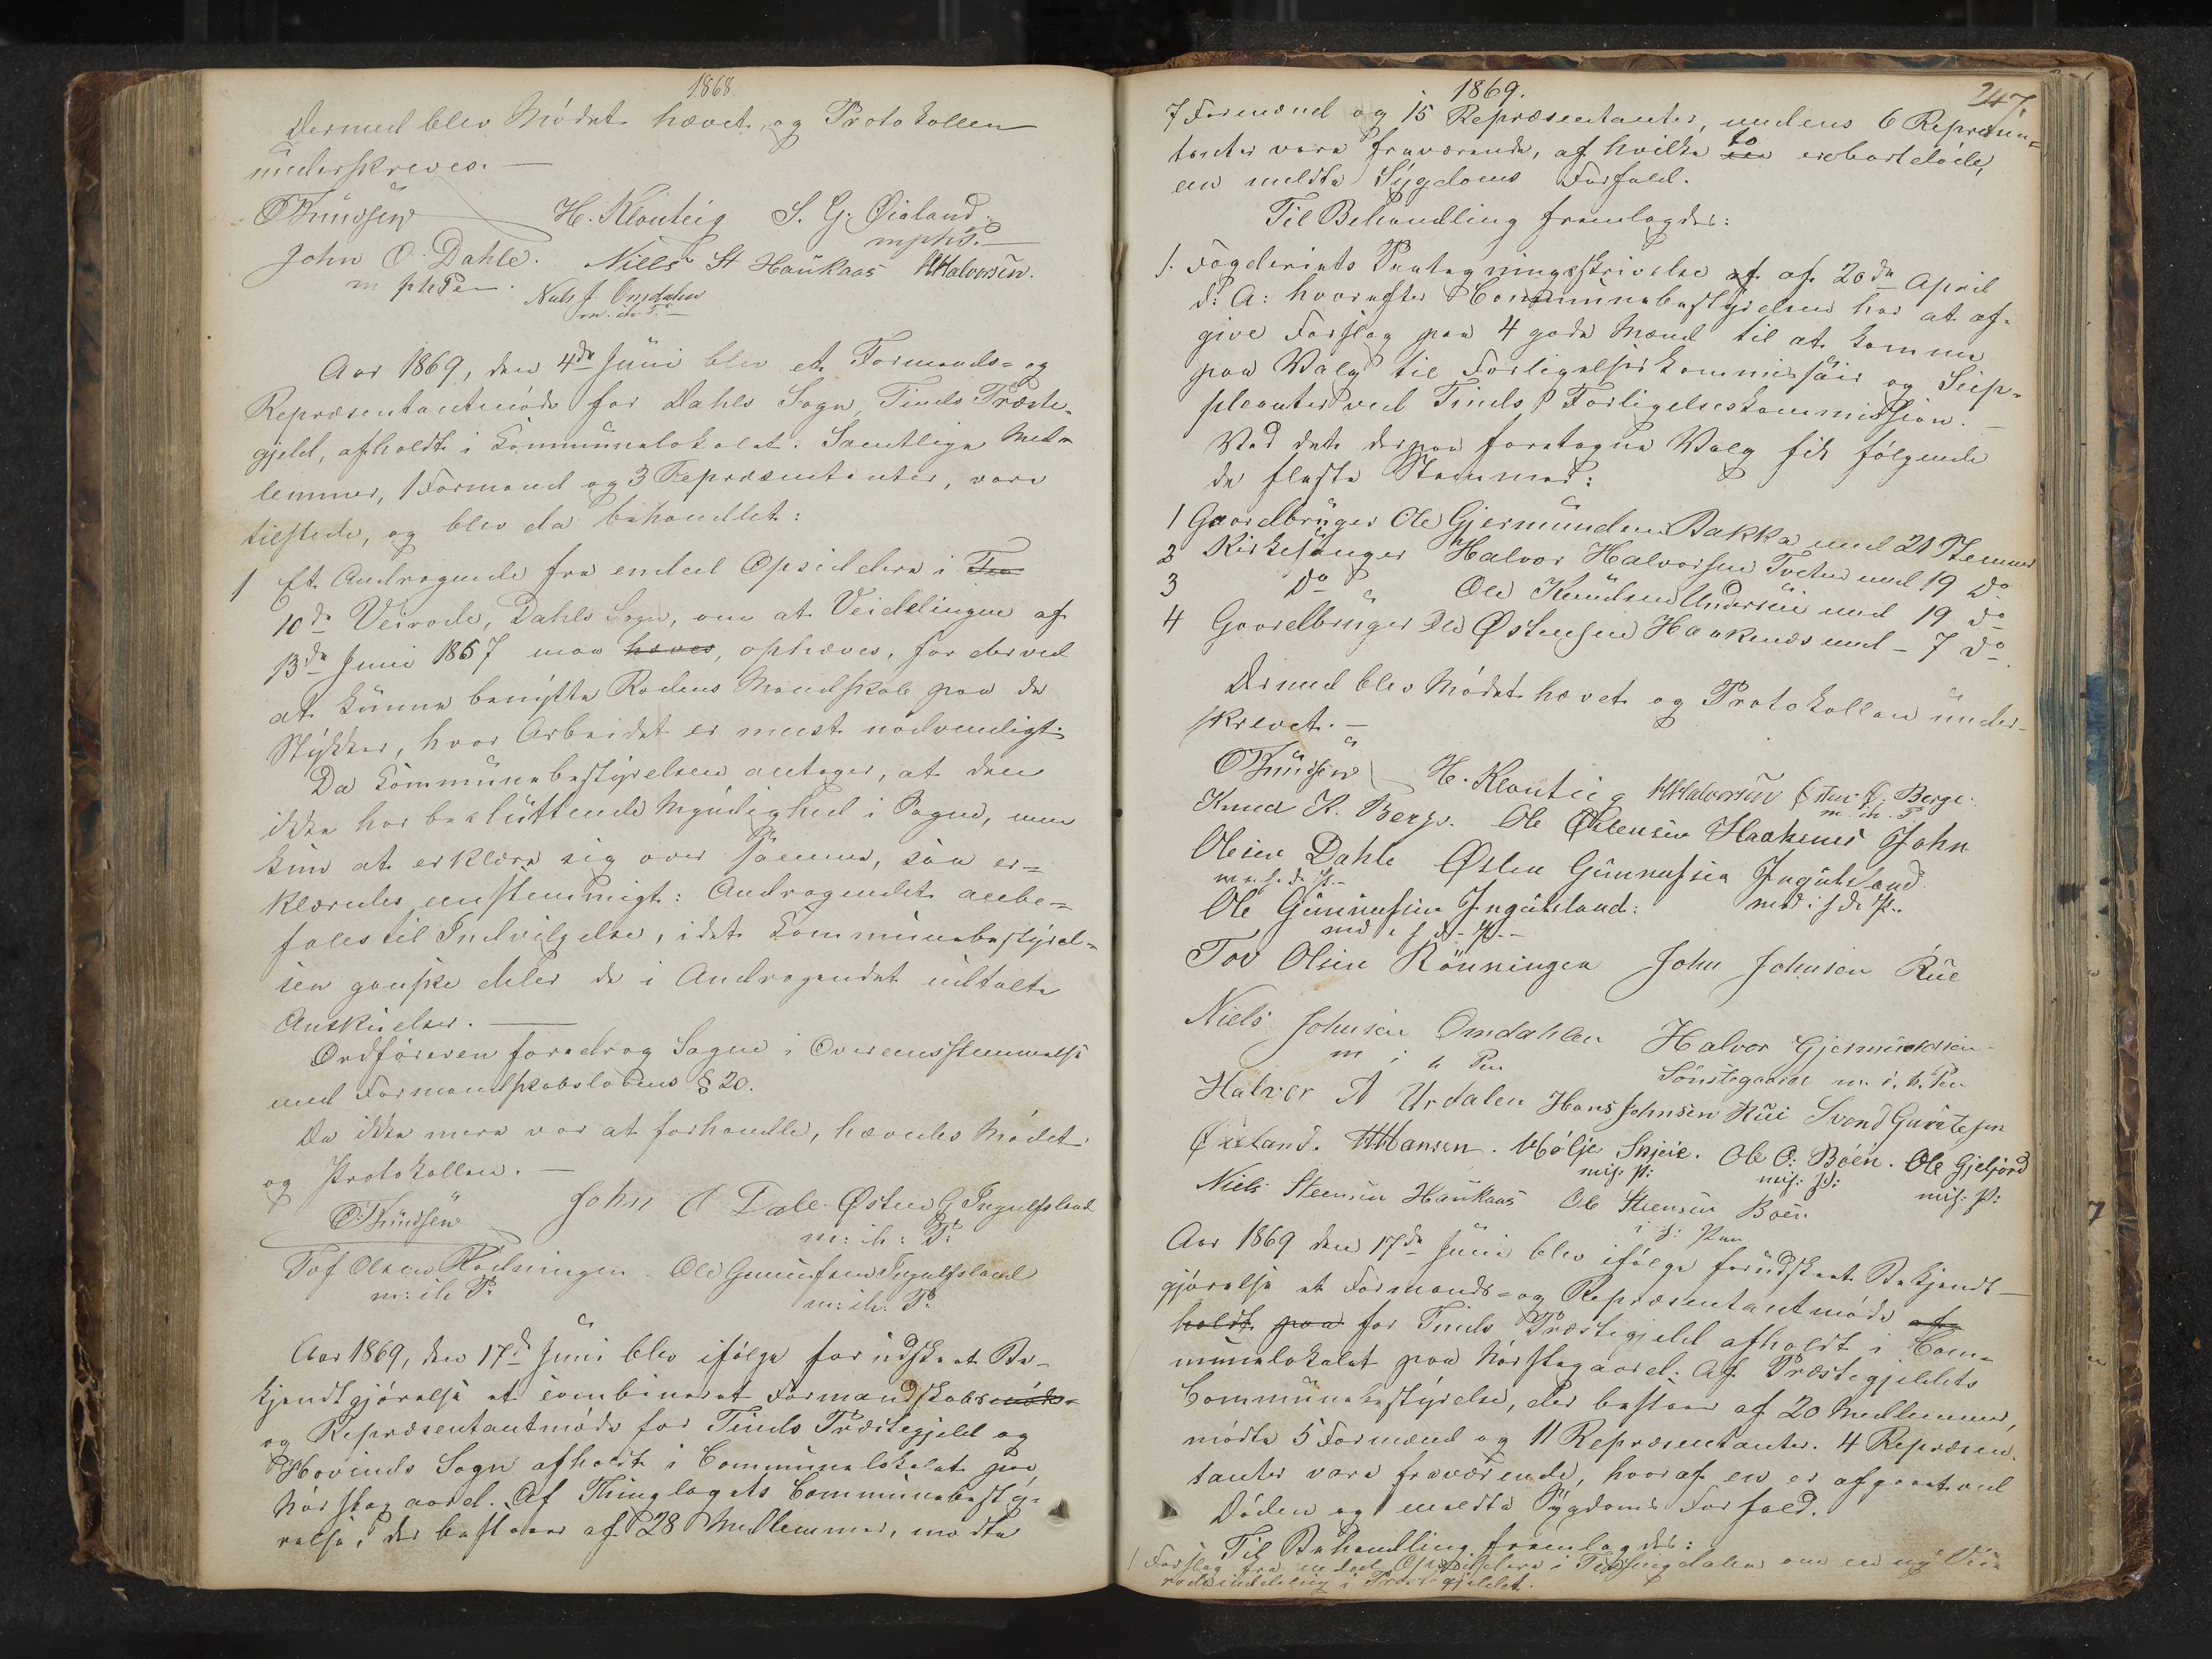 1868
Dermed blev Mødet hævet og Protokollen
underskreves. —
OKnudsen H. Klonteig S. G. Øiuland
mphP. —
John O. Dahle. Niels St Haukaas HHalvorsen.
m ph Pen. Niels J. Omdalen
m. ih. P. —
Aar 1869, den 4de Juni blev et Formands= og
Repræsentantmøde for Dahls Sogn, Tinds Præste-
gjeld, afholdt i Kommunelokalet. Samtlige Med-
lemmer, 1 Formand og 3 Repræsentanter, vare
tilstede, og blev da behandlet:
1 Et Andragende fra endeel Opsiddere i Fra
10de Veirode, Dahls Sogn, om at Veidelingen af
13de Juni 1867 maa hæves, ophæves, for derved
at kunne benytte Rodens Mandskab paa de
Stykker, hvor Arbeidet er meest nødvendigt.
Da Kommunebestyrelsen antager, at den
ikke har besluttende Myndighed i Sagen, men
kun at erklære sig over samme, saa er=
klæredes eenstemmigt: Andragendet anbe=
fales til Indvilgelse, idet Kommunebestyrel=
sen ganske deler de i Andragendet udtalte
Anskuelser. —
Ordføreren foredrog Sagen i Overeensstemmelse
med Formandskabslovens § 20.
Da ikke mere var at forhandle, hævedes Mødet
og Protokollen. —
O. Knudsen John O Dale Østen G Ingulfsland
m: ih: P:
Tof Olsen Rødningen Ole Gunnufsen Ingulfsland
m: ih P. m: ih: P:
Aar 1869, den 17de Juni blev ifølge forudskeet Be-
kjendtgjørelse et combineret Formandskabsmøde=
og Repræsentantmøde for Tinds Præstegjeld og
Hovinds Sogn afholdt i Communelokalet paa
Mårskogaard. Af Thinglagets Communebesty-
relse, der bestaaer af 28 Medlemmer, mødte
1869.
247
7 Formænd og 15 Repræsentanter, medens 6 Repræsen=
tanter vare fraværende, af hvilke een to ere bortdøde,
en meldte Sygdoms Forfald.
Til Behandling fremlagdes:
1. Fogderiets Paategningsskrivelse af af 20de April
d: A: hvorefter Communebestyrelsen har at af-
give Forslag paa 4 gode Mænd til at komme
paa Valg til Forligelseskommissair og Sup-
pleanter ved Tinds Forligelseskommission. —
Ved det derpaa foretagne Valg fik følgende
de fleste Stemmer:
1 Gaardbruger Ole Gjermundsen Bakka med 21 Stemmer
2 Kirkesanger Halvor Halvorsen Tveten med 19 Do
3 Do Ole Knudsen Undersui med 19 do
4 Gaardbruger Ole Østensen Haakenæs med – 7 do.
Dermed blev Mødet hævet og Protokollen under-
skrevet. —
OKnudsen H. Klonteig HHalvorsen Østen O. Berge.
m. ih. P
Knud K. Berge. Ole Østensen Haakenes John
Olesen Dahle Østen Gunnufsen Ingulsland
Ole Gunnufsen Ingulsland: med i f de P..
md i f de P. —
Tov Olsen Rönningen John Johnsen Rue
Niels Johnsen Omdahlen Halvor Gjermundsen
m i h Pen Sønstegaard m. i. h. Pen
Halvor A Urdalen Hans Johnsen Rui Svend Guutesen
Øixland. HHansen. Hölje Skjeie. Ole O: Bøen. Ole Gjeljord
mif: P: mif: P: mif: P:
Niels Steensen Haukaas Ole Steensen Boen
i f: Pen
Aar 1869 den 17de Juni blev ifølge forudskeet Bekjendt-
gjørelse et Formands= og Repræsentantmøde af
holdt paa for Tinds Præstegjeld afholdt i Com=
munelokalet paa Mårskogaard. Af Præstegjeldets
Communebestyrelse, der bestaar af 20 Medlemmer,
mødte 5 Formænd og 11 Repræsentanter. 4 Repræsen-
tanter vare fraværende, hvoraf en er afgaaet ved
Døden og 1 meldte Sygdoms Forfald.
Til Behandling fremlagdes:
1. Forslag fra endeel Opsiddere i Tessungdalen om en ny Vei-
rodeinddeling i Præstegjeldet.